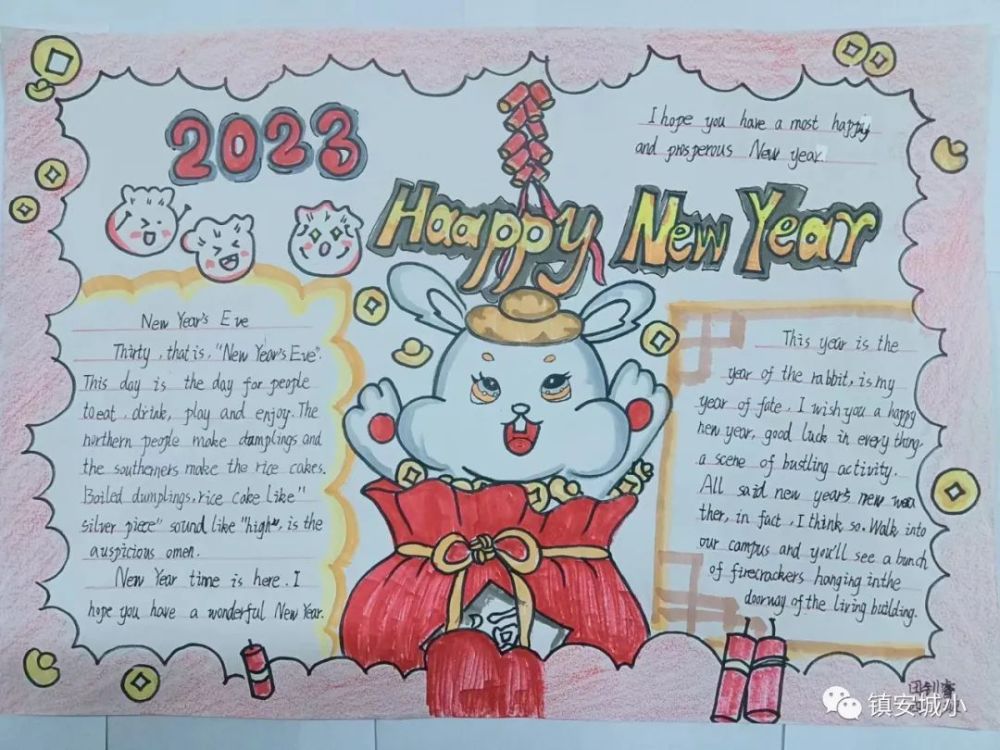 2023
I hope you have a most happy
and prosperous New year.
Haappy New Year
New Year's Eve
Thirty, that is, "New Year's Eve".
This day is the day for people
to eat, drink, play and enjoy. The
northern people make dumplings and
the southerners make the rice cakes.
Boiled dumplings, rice cake like "
silver piece" sound like "high", is the
auspicious omen.
New Year time is here. I
hope you have a wonderful New Year.
This year is the
year of the rabbit, is my
year of fate, I wish you a happy
new year, good luck in every thing.
a scene of bustling activity.
All said new year's new wea
ther, in fact, I think so. Walk into
our campus and you'll see a bunch
of firecrackers hanging in the
doorway of the living building.
福
镇安城小